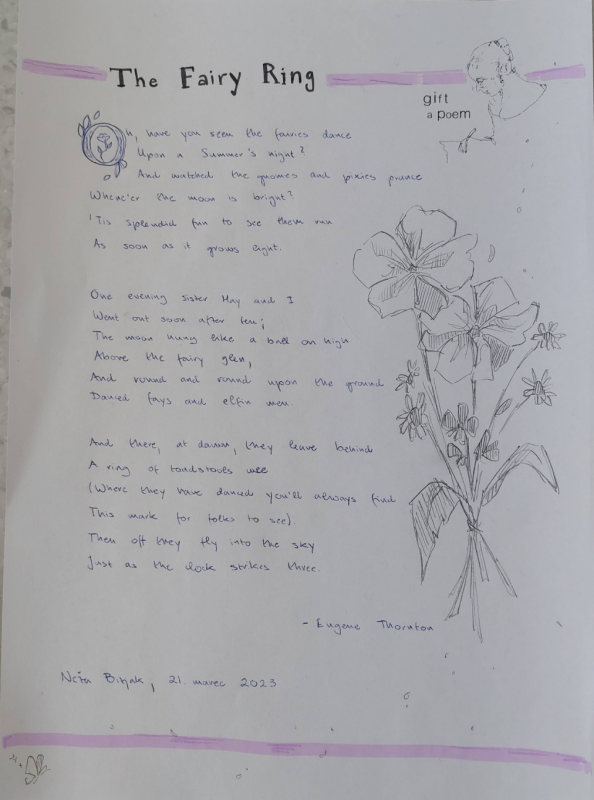 The Fairy Ring
gift
a poem
Oh, have you seen the fairies dance
Upon a Summer's night?
And watched the gnomes and pixies prance
Whene'er the moon is bright?
'Tis splendid fun to see them run
As soon as it grows light.
One evening sister May and I
Went out soon after ten;
The moon hung like a ball on high
Above the fairy glen,
And round and round upon the ground
Danced fays and elfin men.
And there, at dawn, they leave behind
A ring of toadstools wee
(Where they have danced you'll always find
This mark for folks to see).
Then off they fly into the sky
Just as the clock strikes three.
- Eugene Thornton
21. marec 2023